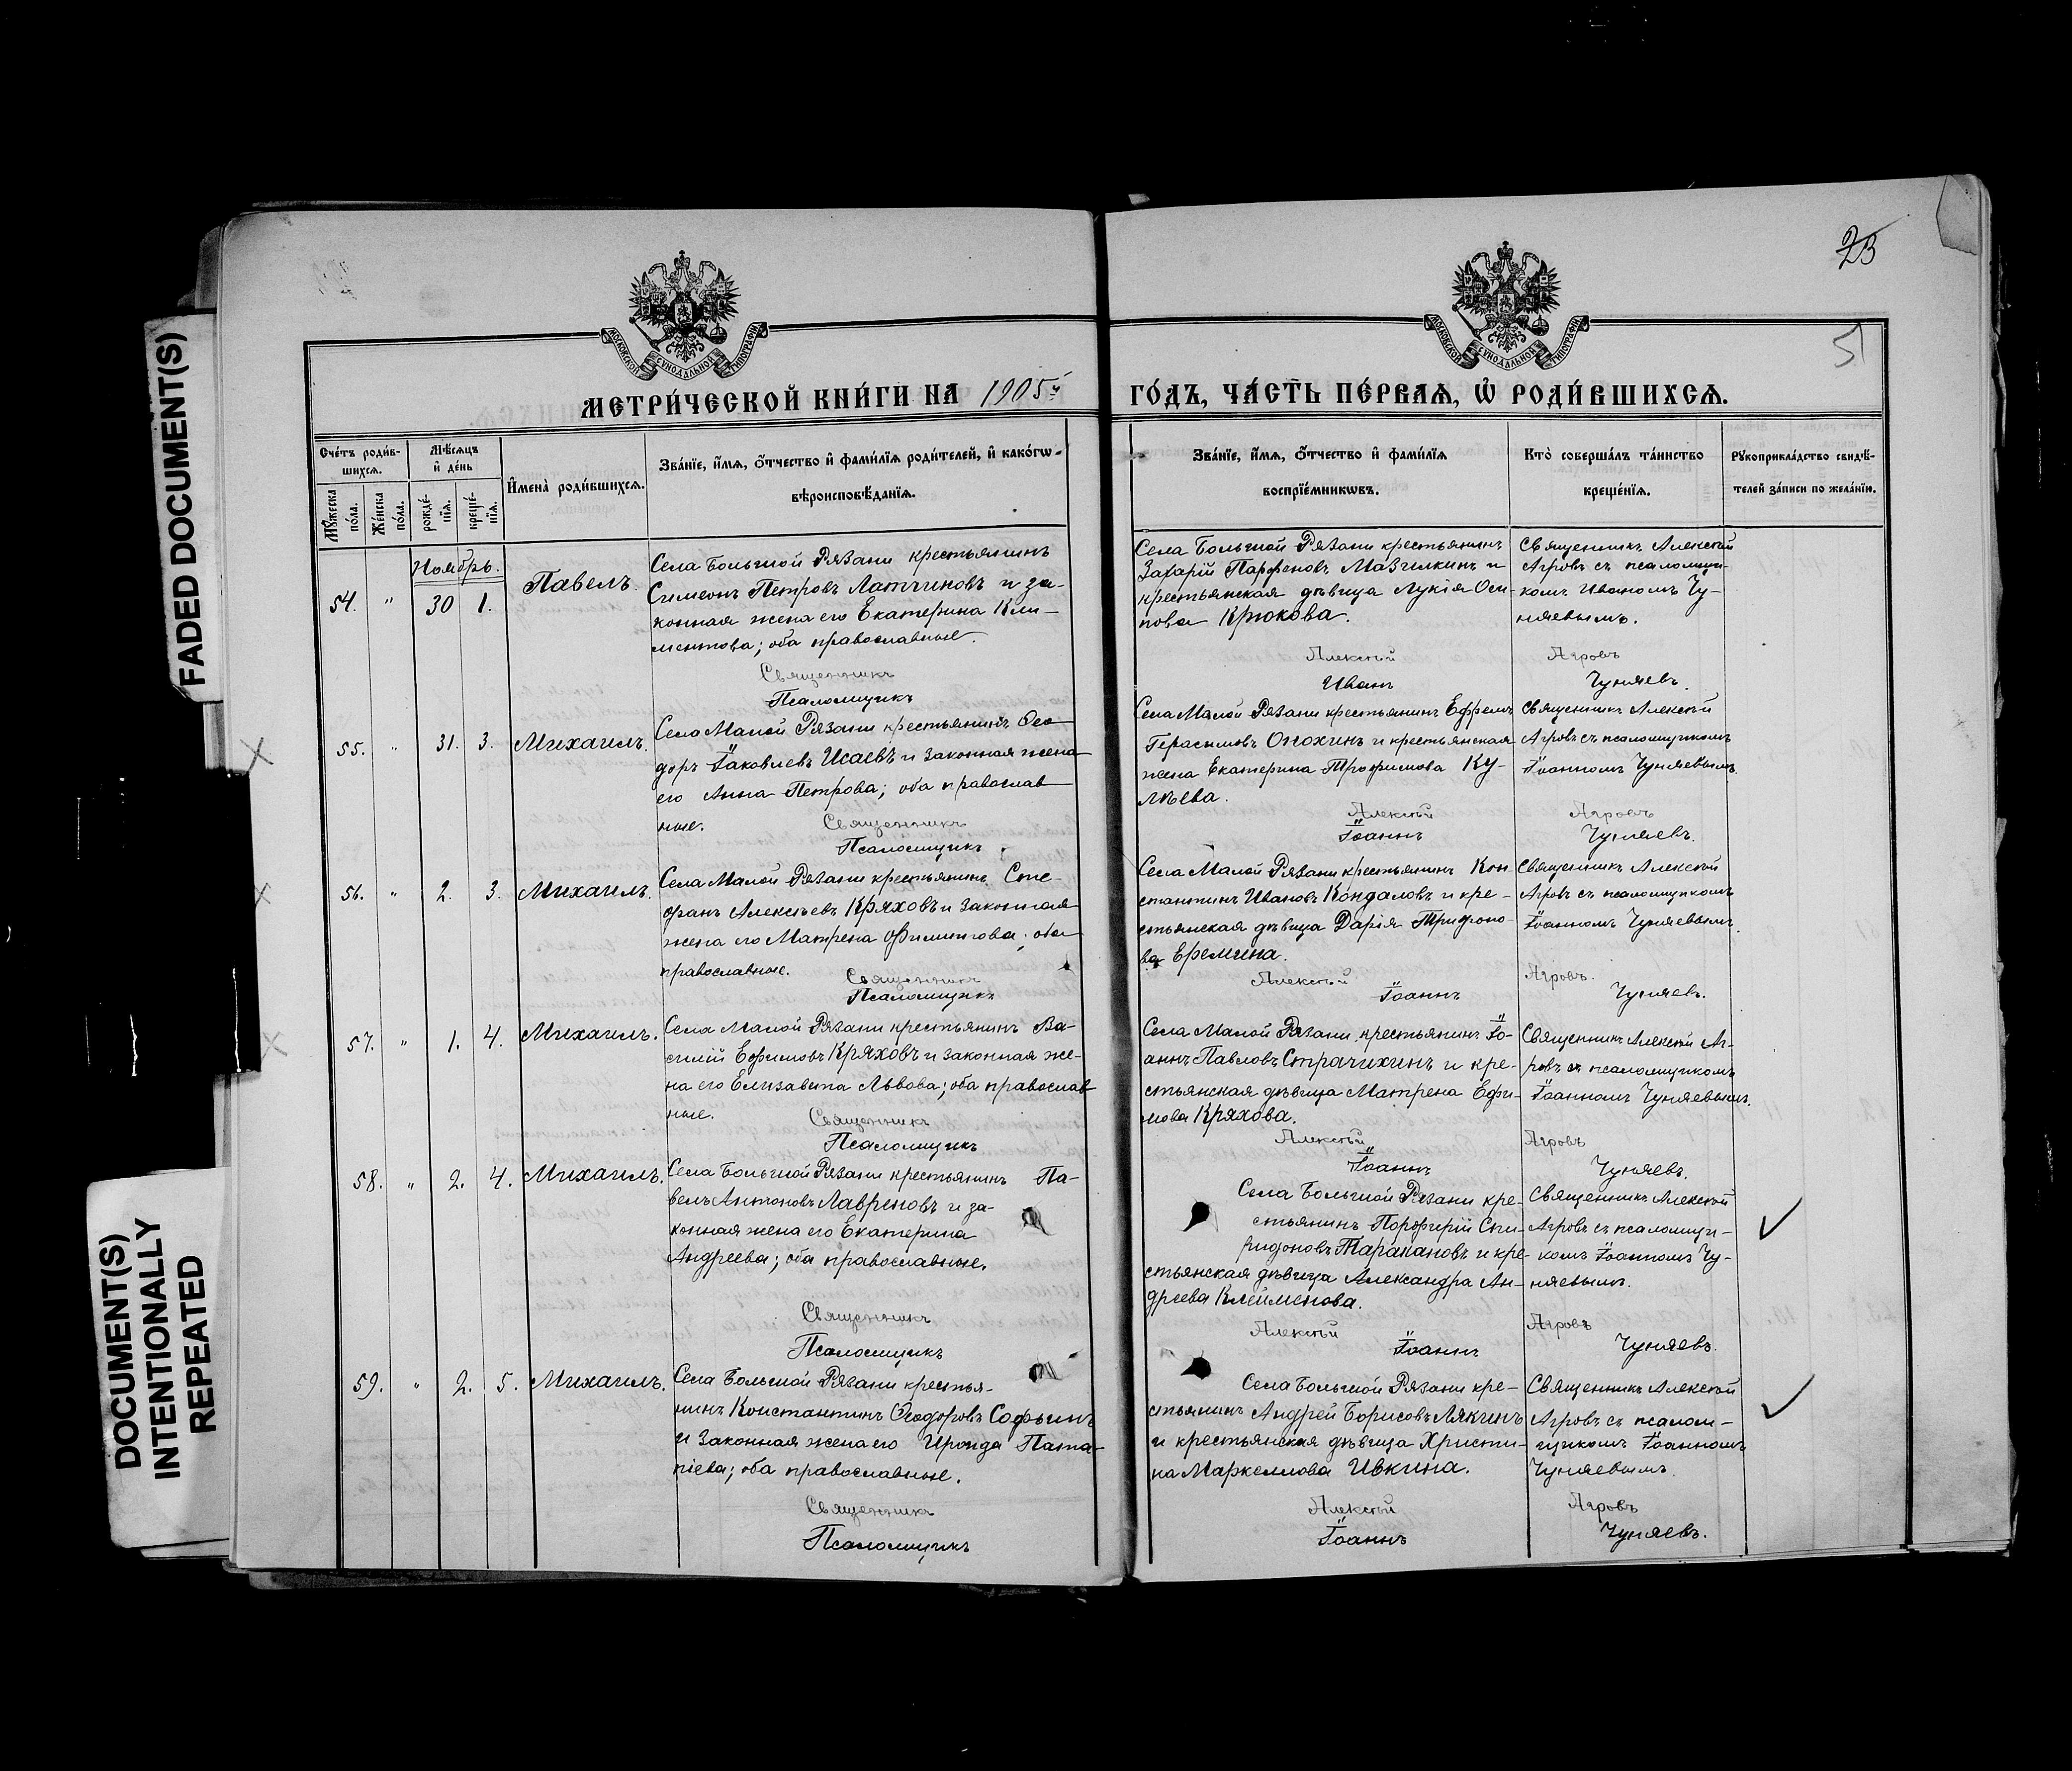 FADED DOCUMENT(S)
DOCUMENT(S)
INTENTIONALLY
REPEATED
23
5
МОСКОВСКОЙ СѴНОДАЛЬНОЙ ТИПОГРАФІИ
МОСКОВСКОЙ СѴНОДАЛЬНОЙ ТИПОГРАФІИ
МЕТРИ́ЧЕСКОЙ КНИ́ГИ НА 1905й
ГО́ДЪ, ЧА́СТЬ ПЕ́РВАѦ, Ѡ҆ РОДИ́ВШИХСѦ.
Сче́тъ роди́в-
шихсѧ.
Мѣ́сѧцъ
и҆ де́нь
Мꙋ́жеска по́ла.
Же́нска по́ла.
рожде́-
нїѧ.
креще́-
нїѧ.
И҆мена̀ роди́вшихсѧ.
Зва́нїе, и҆́мѧ, ѻ҆́тчество и҆ фами́лїѧ роди́телей, и҆ како́гѡ
вѣроисповѣ́данїѧ.
Зва́нїе, и҆́мѧ, ѻ҆́тчество и҆ фами́лїѧ
воспрїе́мникѡвъ.
Кто̀ соверша́лъ та́инство
креще́нїѧ.
Рꙋкоприкла́дство свидѣ́-
телей за́писи по жела́нїю.
Ноябрь.
54. " 30 1. Павелъ.
Села Большой Рязани крестьянинъ
Симеонъ Петровъ Латчиновъ и за-
конная жена его Екатерина Кли-
ментова; оба православные.
Священникъ
Псаломщикъ
Села Большой Рязани крестьянинъ
Захарій Парфеновъ Мазилкинъ и
крестьянская дѣвица Лукія Оси-
пова Крюкова.
Алексѣй
Иванъ
Священникъ Алексѣй
Агровъ съ псаломщи-
комъ Иваномъ Чу-
няевымъ.
Агровъ
Чуняевъ.
55. " 31. 3. Михаилъ.
Села Малой Рязани крестьянинъ Ѳео-
доръ Іаковлевъ Исаевъ и законная жена
его Анна Петрова; оба православ
ные.
Священникъ
Псаломщикъ
Села Малой Рязани крестьянинъ Ефремъ
Герасимовъ Онохинъ и крестьянская
жена Екатерина Трофимова Ку-
лѣева.
Алексѣй
Іоаннъ
Священникъ Алексѣй
Агровъ съ псаломщикомъ
Іоанномъ Чуняевымъ.
Агровъ
Чуняевъ.
56. " 2. 3. Михаилъ.
Села Малой Рязани крестьянинъ Сте-
фанъ Алексѣевъ Кряховъ и законная
жена его Матрена Филиппова; оба
православные.
Священникъ
Псаломщикъ
Села Малой Рязани крестьянинъ Кон
стантинъ Ивановъ Кондаловъ и кре-
стьянская дѣвица Дарія Трифоно-
ва Еремина.
Алексѣй
Іоаннъ
Священникъ Алексѣй
Агровъ съ псаломщикомъ
Іоанномъ Чуняевымъ.
Агровъ.
Чуняевъ.
57. " 1. 4. Михаилъ.
Села Малой Рязани крестьянинъ Ва-
силій Ефимовъ Кряховъ и законная же-
на его Елизавета Львова; оба православ
ные.
Священникъ
Псаломщикъ
Села Малой Рязани крестьянинъ Іо-
аннъ Павловъ Страчихинъ и кре-
стьянская дѣвица Матрена Ефи-
мова Кряхова.
Алексѣй
Іоаннъ
Священникъ Алексѣй Аг-
ровъ съ псаломщикомъ
Іоанномъ Чуняевымъ.
Агровъ
Чуняевъ.
58. " 2. 4. Михаилъ.
Села Большой Рязани крестьянинъ Па-
велъ Антоновъ Лавреновъ и за-
конная жена его Екатерина
Андреева; оба православные.
Священникъ
Псаломщикъ
Села Большой Рязани кре-
стьянинъ Порфирій Спи-
ридоновъ Таракановъ и кре-
стьянская дѣвица Александра Ан-
дреева Клейменова.
Алексѣй
Іоаннъ
Священникъ Алексѣй
Агровъ съ псаломщи-
комъ Іоанномъ Чу-
няевымъ.
Агровъ
Чуняевъ.
59. " 2. 5. Михаилъ.
Села Большой Рязани крестья-
нинъ Константинъ Ѳеодоровъ Софьинъ
и законная жена его Ироида Пата-
піева; оба православные.
Священникъ
Псаломщикъ
Села Большой Рязани кре-
стьянинъ Андрей Борисовъ Лякинъ
и крестьянская дѣвица Христи-
на Маркеллова Ивкина.
Алексѣй
Іоаннъ
Священникъ Алексѣй
Агровъ съ псалом-
щикомъ Іоанномъ
Чуняевымъ.
Агровъ
Чуняевъ.